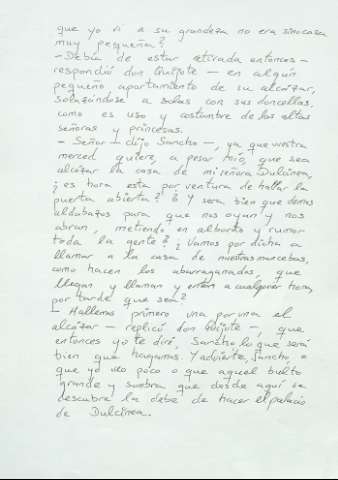 que yo vi a su grandeza no era sino casa
muy pequeña?
- Debía de estar retirada entonces -
respondió don Quijote - en algún
pequeño apartamiento de su alcázar,
solazándose a solas con sus doncellas,
como es uso y costumbre de las altas
señoras y princesas.
- Señor - dijo Sancho -, ya que vuestra
merced quiere, a pesar mío, que sea
alcázar la casa de mi señora Dulcinea,
¿es hora esta por ventura de hallar la
puerta abierta? ¿Y será bien que demos
aldabazos para que nos oyan y nos
abran, metiendo en alboroto y rumor
toda la gente? ¿Vamos por dicha a
llamar a la casa de nuestras mancebas,
como hacen los abarraganados, que
llegan y llaman y entran a cualquier hora,
por tarde que sea?
- Hallemos primero una por una el
alcázar - replicó don Quijote -, que
entonces yo te diré, Sancho lo que será
bien que hagamos. Y advierte, Sancho,
que yo veo poco o que aquel bulto
grande y sombra que desde aquí se
descubre la debe de hacer el palacio
de Dulcinea.